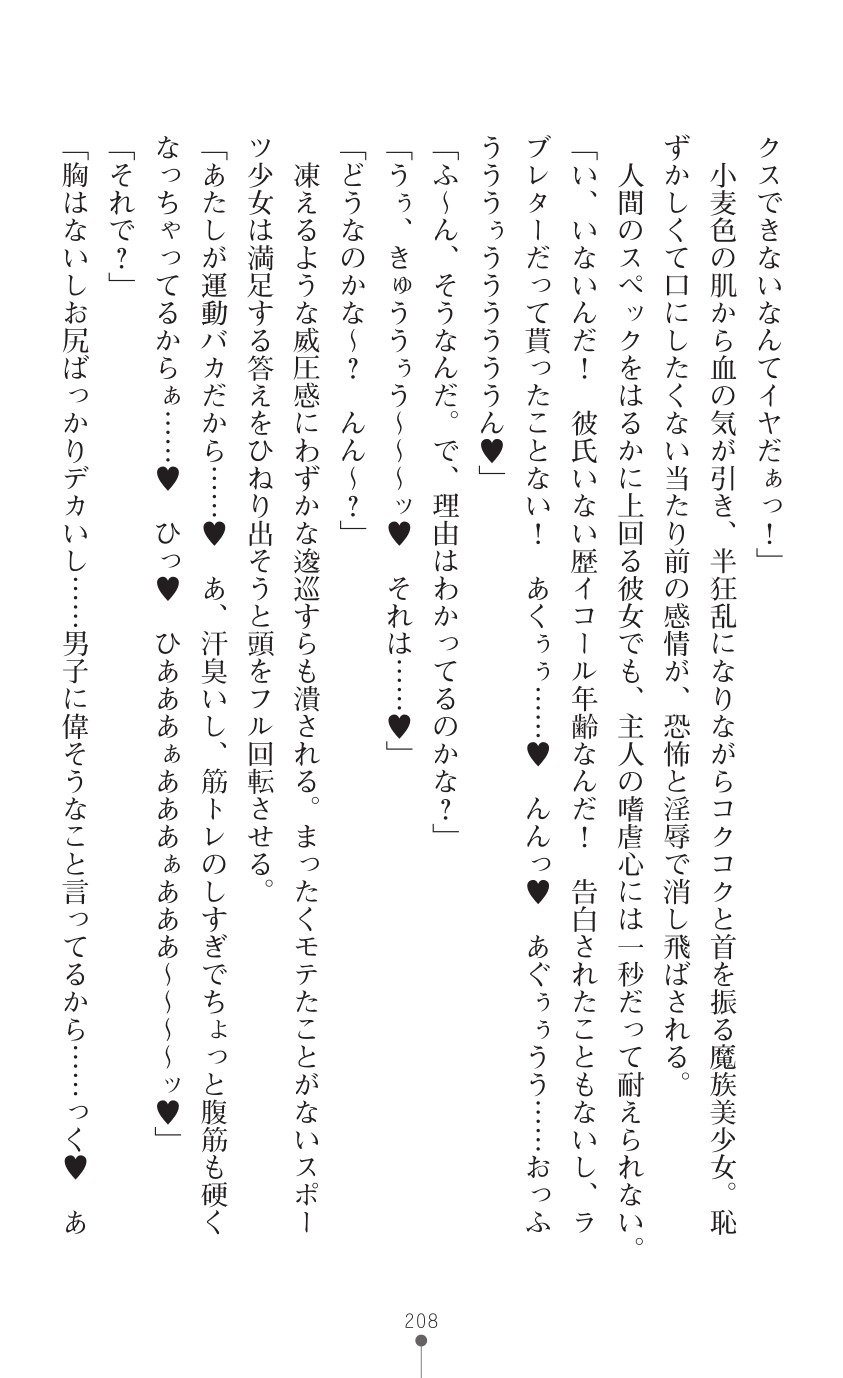 クスできないなんてイヤだぁっ！」
　小麦色の肌から血の気が引き、半狂乱になりながらコクコクと首を振る魔族美少女。恥
ずかしくて口にしたくない当たり前の感情が、恐怖と淫辱で消し飛ばされる。
　人間のスペックをはるかに上回る彼女でも、主人の嗜虐心には一秒だって耐えられない。
「い、いないんだ！　彼氏いない歴イコール年齢なんだ！　告白されたこともないし、ラ
ブレターだって貰ったことない！　あくぅぅ……♥　んんっ♥　あぐぅぅうう……おっふ
うううぅうううううん♥」
「ふ～ん、そうなんだ。で、理由はわかってるのかな？」
「うぅ、きゅううぅう～～～ッ♥　それは……♥」
「どうなのかな～？　んん～？」
　凍えるような威圧感にわずかな逡巡すらも潰される。まったくモテたことがないスポー
ツ少女は満足する答えをひねり出そうと頭をフル回転させる。
「あたしが運動バカだから……♥　あ、汗臭いし、筋トレのしすぎでちょっと腹筋も硬く
なっちゃってるからぁ……♥　ひっ♥　ひあああぁあああぁあああ～～～～ッ♥」
「それで？」
「胸はないしお尻ばっかりデカいし……男子に偉そうなこと言ってるから……っく♥　あ
208